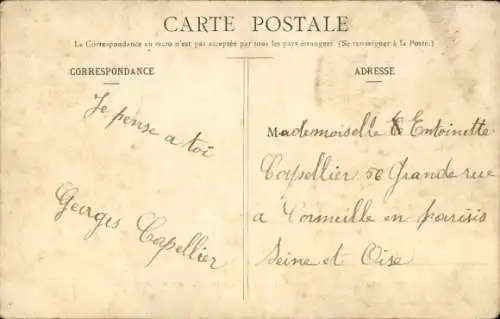 CARTE POSTALE
La Correspondance au recto n'est pas acceptée par tous les pays étrangers. (Se renseigner à la Poste.)
CORRESPONDANCE
Je pense a toi
Georges Capellier
ADRESSE
Mademoiselle Entoinette
Capellier 50 Grande rue
a Cormeille en parisis
Seine et Oise